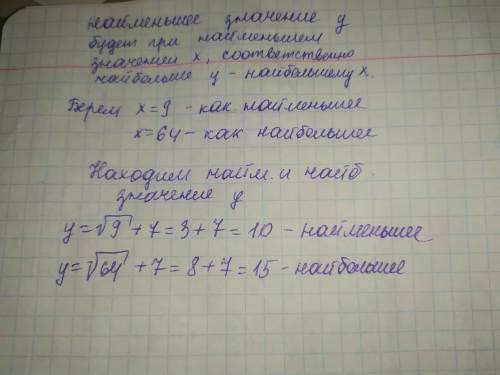 наименьшее значение y
будет при наименьшем
значении x, соответственно
наибольше y - наибольшему x.
Берем x=9 - как наименьшее
x=64 - как наибольшее
Находим найм. и наиб.
значение y
y=√9+7=3+7=10 - наименьшее
y=√64+7=8+7=15 - наибольшее